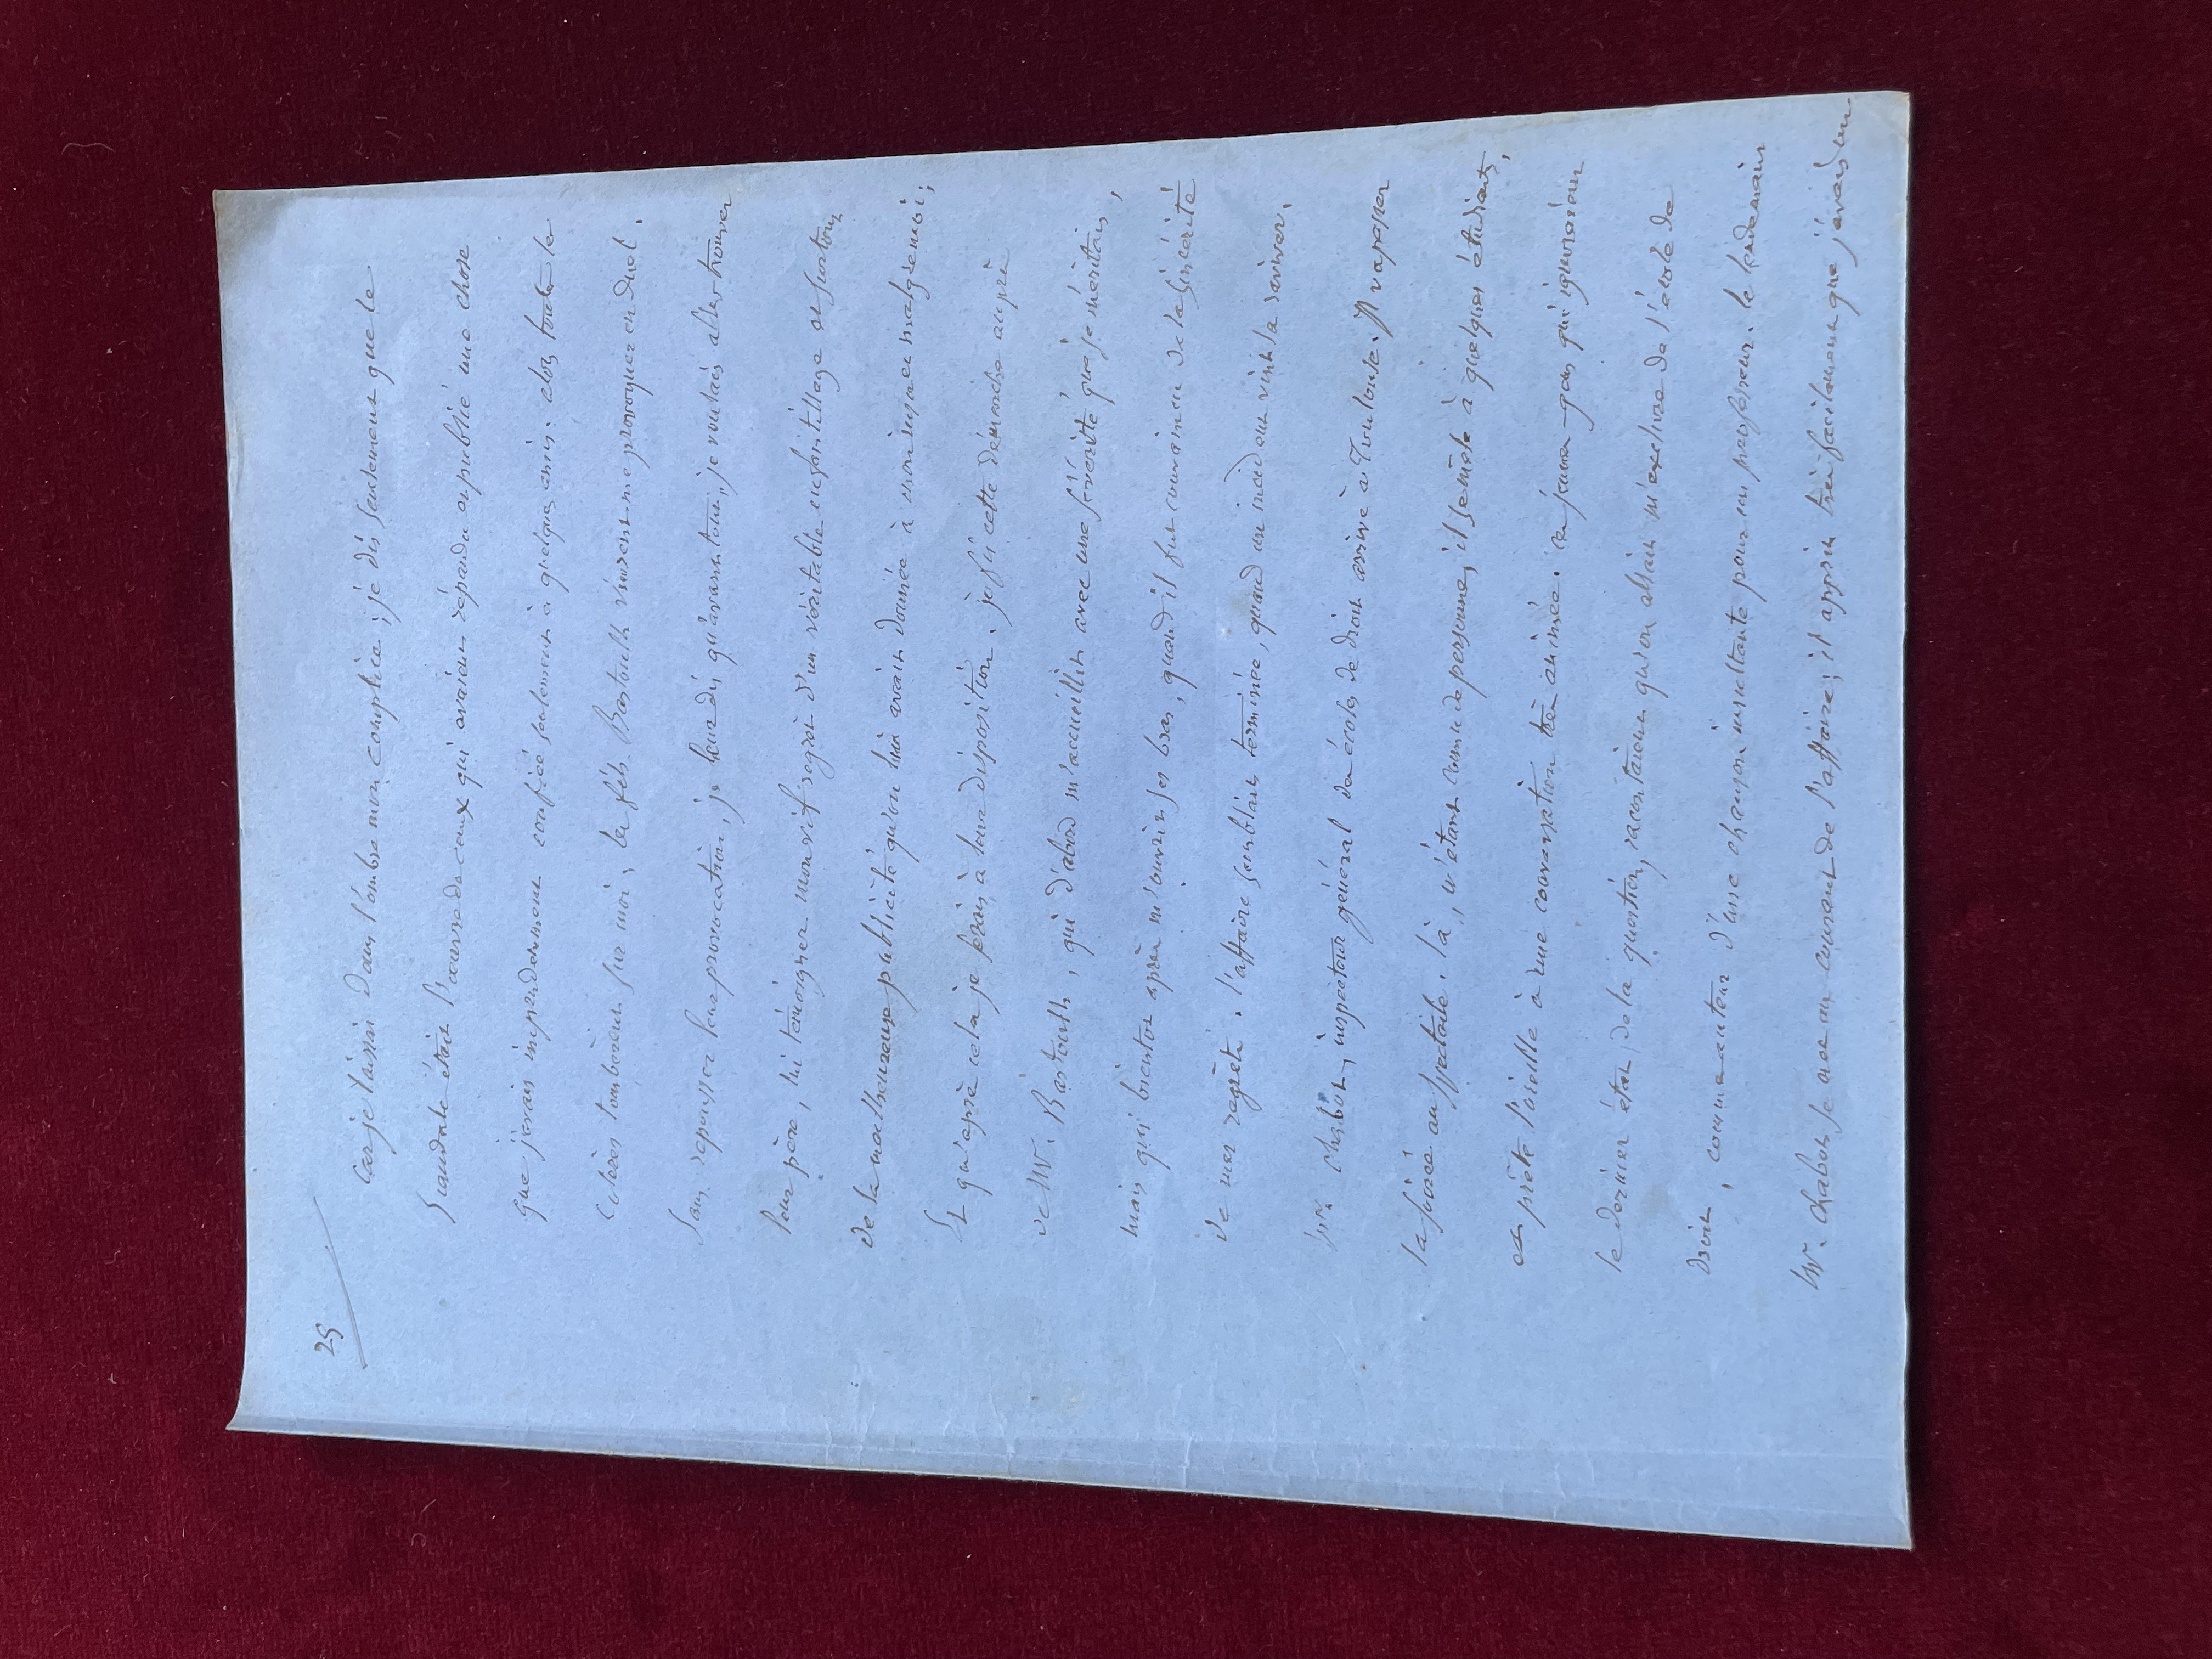 25
car je laissai dans l'ombre mon complice ; je dis seulement que le
scandale était l'œuvre de ceux qui avaient répandu et publié une chose
que j'avais imprudemment confiée seulement à quelques amis. alors toutes les
colères tombèrent sur moi ; les fils Bastoulh vinrent me provoquer en duel.
Sans repousser leur provocation, je leur dis qu'avant tout, je voulais aller trouver
leur père, lui témoigner mon vif regret d'un véritable enfantillage et surtout
de la malheureuse publicité qu'on lui avait donnée à mon insu et malgré moi ;
Et qu'après cela je serais à leur disposition. je fis cette démarche auprès
de Mr. Bastoulh, qui d'abord m'accueillit avec une sévérité que je méritais,
mais qui bientôt après m'ouvrit ses bras, quand il fut convaincu de la sincérité
de mes regrets. l'affaire semblait terminée, quand un incident vint la raviver.
Mr. Chabot, inspecteur général des écoles de droit arrive à Toulouse. Il va passer
la soirée au spectacle. là, n'étant connu de personne, il se mêle à quelques étudiants,
et prête l'oreille à une conversation très animée. ces jeunes gens qui ignoraient
le dernier état de la question, racontaient qu'on allait m'exclure de l'école de
droit, comme auteur d'une chanson insultante pour un professeur. le lendemain
Mr. Chabot se met au courant de l'affaire ; il apprit très facilement que j'avais un